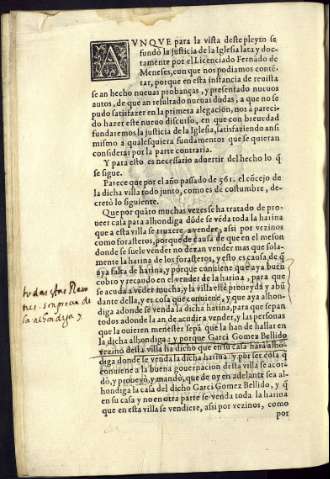 AVNQVE para la vista deste pleyto se
fundó la justicia de la Iglesia lata y doc-
tamente por el Licenciado Fernãdo de
Meneses, con que nos podiamos conté-
tar, porque en esta instancia de reuista
se an hecho nueuas probanças, y presentado nueuos
autos, de que an resultado nueuas dudas, a que no se
pudo satisfazer en la primera alegacion, nos a pareci-
do hazer este nueuo discurso, en que con breuedad
fundaremos la justicia de la Iglesia, satisfaziendo ansi
mismo a qualesquiera fundamentos que se quieran
considerar por la parte contraria.
Y para esto es necesario aduertir del hecho lo q̃
se sigue.
Parece que por el año pasado de 561. el cõcejo de
la dicha villa todo junto, como es de costumbre, de-
cretò lo siguiente.
Que por quãto muchas vezes se ha tratado de pro-
ueer casa para alhondiga dõde se vẽda toda la harina
que a esta villa se truxere a vender, asi por vezinos
como forasteros, porque de causa de que en el meson
donde se suele vender no dexan vender mas que sola-
mente la harina de los forasteros, y esto es causa de q̃
aya falta de harina, y porque conuiene que aya buen
cobro y recaudo en el vender de la harina, para que
se acuda a vẽder mucha, y la villa estè proueyda y abũ
dante della, y es cosa que conuiene, y que aya alhon-
diga adonde se venda la dicha harina, para que sepan
todos adonde la an de acudir a vender, y las personas
que la quieren menester sepã que la han de hallar en
la dicha alhondiga: y porque Garci Gomez Bellido
vezino desta villa ha dicho que en su casa hara alhõ-
diga donde se venda la dicha harina, y por ser cosa q̃
conuiene a la buena gouernacion desta villa se acor-
dò, y proueyò, y mandò, que de oy en adelante sea al-
hondiga la casa del dicho Garci Gomez Bellido, y q̃
en su casa y no en otra parte se venda toda la harina
que en esta villa se vendiere, asi por vezinos, como
por
la alhondiga